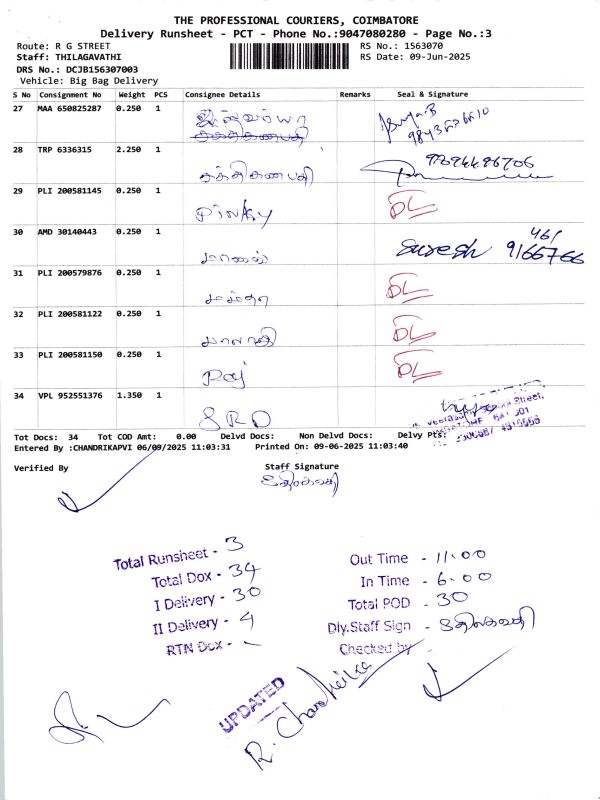 THE PROFESSIONAL COURIERS, COIMBATORE
Delivery Runsheet - PCT - Phone No.:9047080280 - Page No.:3
Route: R G STREET RS No.: 1563070
Staff: THILAGAVATHI RS Date: 09-Jun-2025
DRS No.: DCJB156307003
Vehicle: Big Bag Delivery
S No Consignment No Weight PCS Consignee Details Remarks Seal & Signature
27 MAA 650825287 0.250 1
சக்திகணபதி
28 TRP 6336315 2.250 1
சக்திகணபதி
29 PLI 200581145 0.250 1
Pinky DL
30 AMD 30140443 0.250 1
Suresh
31 PLI 200579876 0.250 1
மம்தா DL
32 PLI 200581122 0.250 1
மாலதி DL
33 PLI 200581150 0.250 1
Raj DL
34 VPL 952551376 1.350 1
SRD
Tot Docs: 34 Tot COD Amt: 0.00 Delvd Docs: Non Delvd Docs: Delvy Pts:
Entered By :CHANDRIKAPVI 06/09/2025 11:03:31 Printed On: 09-06-2025 11:03:40
Verified By Staff Signature
திலகவதி
Total Runsheet - 3
Total Dox - 34
I Delivery - 30
II Delivery - 4
RTN Dox -
Out Time - 11:00
In Time - 6.00
Total POD - 30
Dly.Staff Sign - திலகவதி
Checked by
UPDATED
R. Chandrika